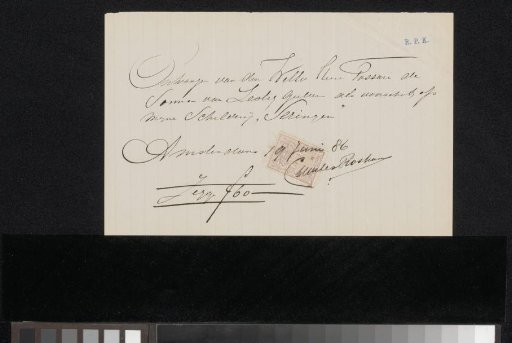 R.P.K.
Ontvangen van den Weled. Heer Tassaro de
Somma van Zestig Gulden als voorschot op
mijne Schilderij "Seringen"
Amsterdam 19 Juni 86
Zegge f60